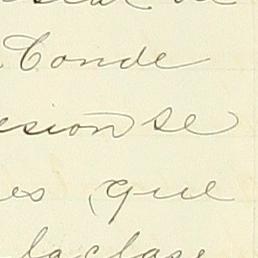 Conde
esion se
es que
la clase